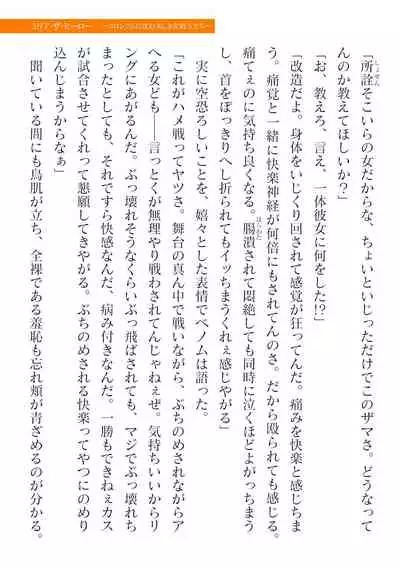 ユリア・ザ・ヒーロー
「所詮そこいらの女だからな、ちょいといじっただけでこのザマさ。どうなって
んのか教えてほしいか？」
「お、教えろ、言え、一体彼女に何をした!?」
「改造だよ。身体をいじくり回されて感覚が狂ってんだ。痛みを快楽と感じちま
う。痛覚と一緒に快楽神経が何倍にもされてんのさ。だから殴られても感じる。
痛てぇのに気持ち良くなる。腸潰されて悶絶しても同時に泣くほどよがっちまう
し、首をぽっきりへし折られてもイッちまうくれぇ感じやがる」
実に空恐ろしいことを、嬉々とした表情でベノムは語った。
「これがハメ戦ってヤツさ。舞台の真ん中で戦いながら、ぶちのめされながらア
へる女ども――言っとくが無理やり戦わされてんじゃねぇぜ。気持ちいいからリ
ングにあがるんだ。ぶっ壊れそうなくらいぶっ飛ばされても、マジでぶっ壊れち
まったとしても、それですら快感なんだ、病み付きなんだ。一勝もできねぇカス
が試合させてくれって懇願してきやがる。ぶちのめされる快楽ってやつにのめり
込んじまうからなぁ」
聞いている間にも鳥肌が立ち、全裸である羞恥も忘れ頬が青ざめるのが分かる。